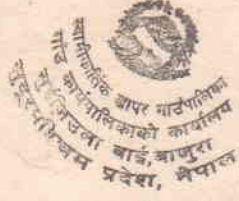 स्वामीकार्तिक खापर गाउँपालिका
गाउँ कार्यपालिकाको कार्यालय
वाई, बाजुरा
सुदूरपश्चिम प्रदेश, नेपाल